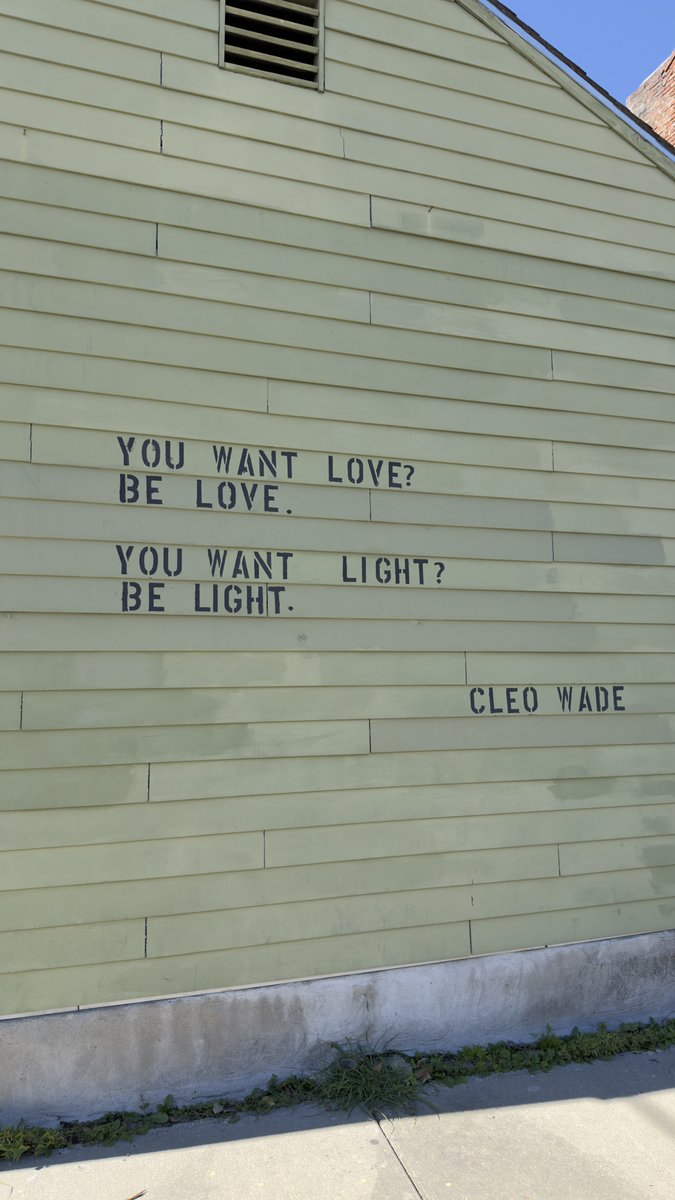 YOU WANT LOVE?
BE LOVE.
YOU WANT LIGHT?
BE LIGHT.
CLEO WADE